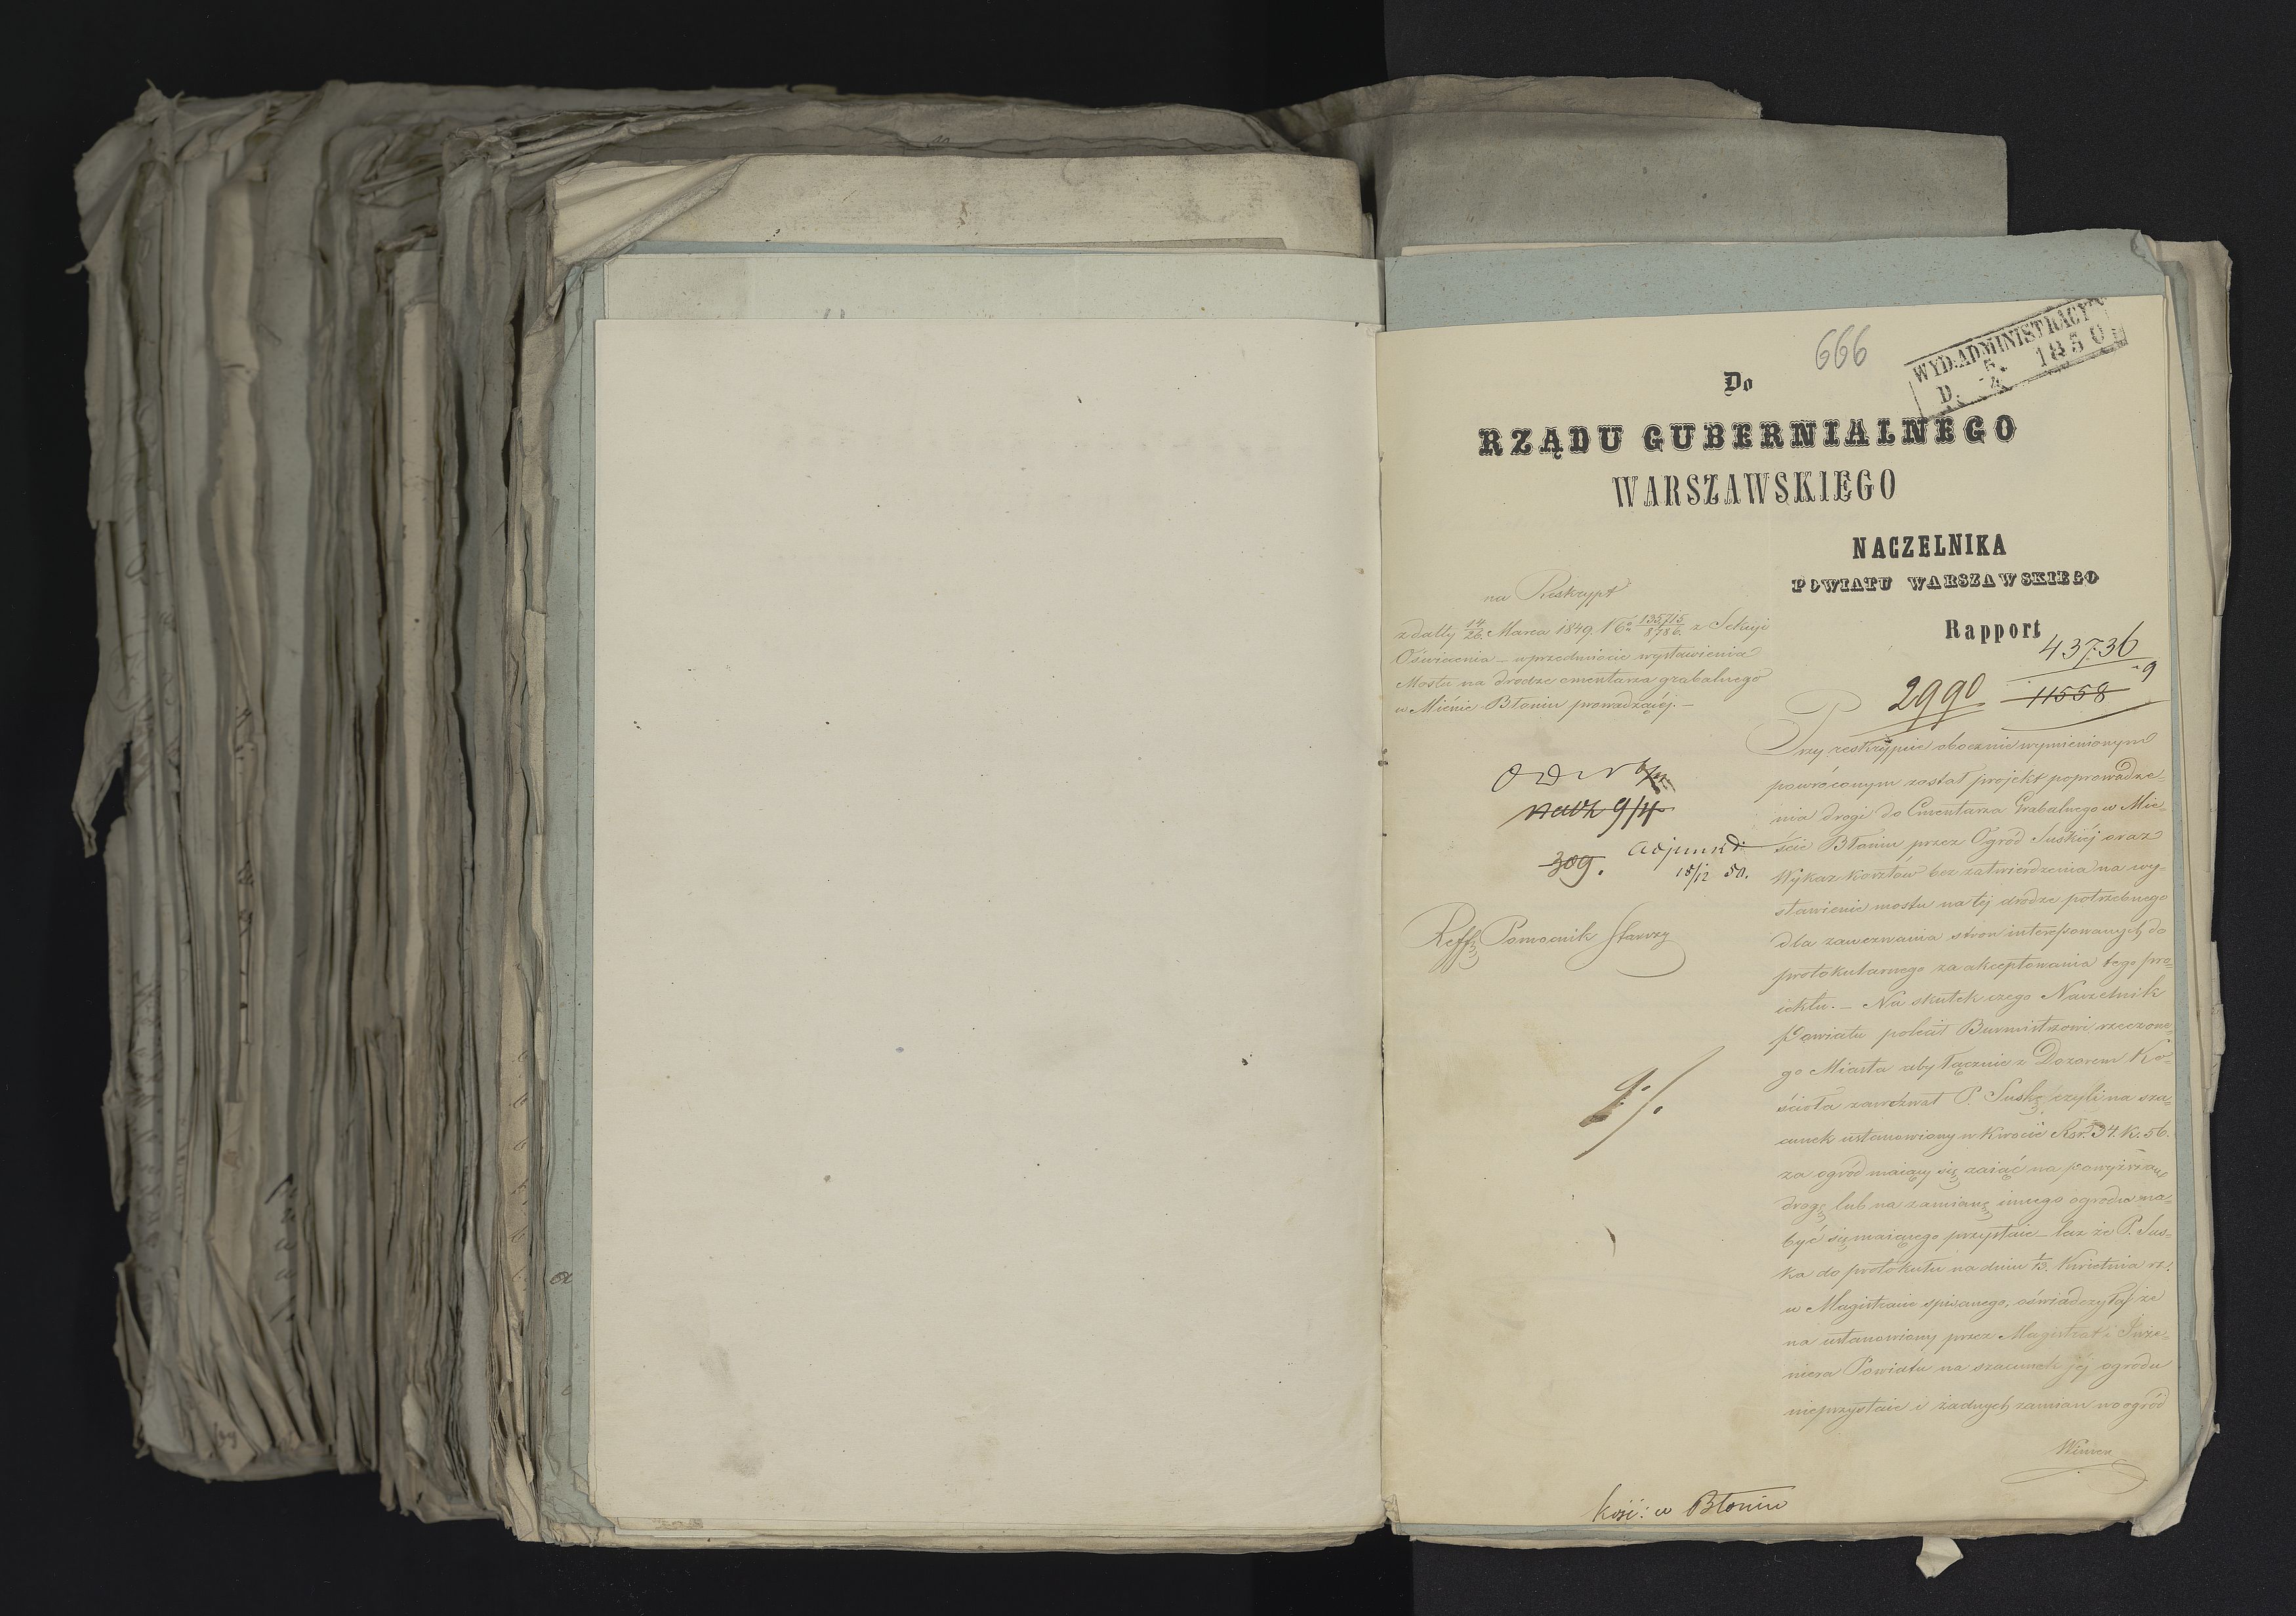 666
WYD. ADMINISTRACYI
D. 5. 4. 1850
Do
RZĄDU GUBERNIALNEGO
WARSZAWSKIEGO
NACZELNIKA
POWIATU WARSZAWSKIEGO
Rapport
43736
2990 11558 -9
na Reskrypt
z datty 14/26 Marca 1849. N° 135715/8786. z Sekcyi
Oświecenia – w przedmiocie wystawienia
Mostu na drodze cmentarza grabalnego
w Mieście Błoniu prowadzącéj. –
9/4
309. Adjunkt
18/12 50.
Reff. Pomocnik Starszy
Przy reskrypcie obocznie wymienionym
powróconym został projekt poprowadze=
nia drogi do Cmentarza Grabalnego w Mie=
ście Błoniu przez Ogród Suskiéj oraz
Wykaz kosztów bez zatwierdzenia na wy=
stawienie mostu na téj drodze potrzebnego
dla zawezwania stron interesowanych do
protokularnego zaakceptowania tego pro=
iektu. – Na skutek czego Naczelnik
Powiatu polecił Burmistrzowi rzeczone=
go Miasta aby łącznie z Dozorem Ko=
ścioła zawezwał P. Suskę czyli na sza=
cunek ustanowiony w kwocie Rsr. 34. k. 56.
za ogród maiący się zaiąć na powyższą
drogę lub na zamianę innego ogrodu na=
być się maiącego przystaie – lecz że P. Sus=
ka do protokułu na dniu 1/13. Kwietnia r.z.
w Magistracie spisanego, oświadczyła że
na ustanowiony przez Magistrat i Inże=
niera Powiatu na szacunek jéj ogrodu
nieprzystaie i żadnych zamian na ogród
Kość: w Błoniu